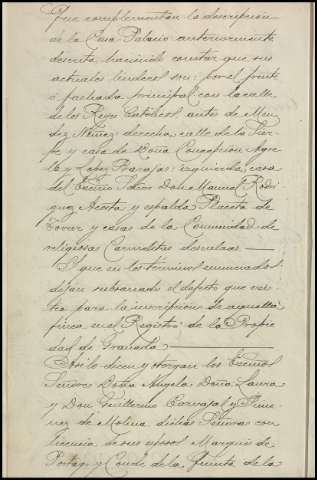 que complementan la descripcion
de la Casa Palacio anteriormente
descrita haciendo constar que sus
actuales linderos son: por el frente
ó fachada principal con la calle
de los Reyes Católicos, antes de Men-
dez Nuñez: derecha, calle de la
y casa de Doña Concepcion
y Lopez Barajas: izquierda, casa
del Excmo Señor Don Manuel Rodri
guez Acosta y espalda Placeta de
Tovar y casas de la Comunidad de
religiosas Carmelitas descalzas.
Y que en los terminos enunciados
dejan subsanado el defecto que exis-
tia para la inscripcion de aquella
finca en el Registro de la Propie
dad de Granada
Asi lo dicen y otorgan los Excmos
Señores Doña Angela, Doña Laura
y Don Guillermo Carvajal y Jime
nez de Molina, dichas Señoras con
licencia de sus esposos Marqués de
Portago y Conde de la Quinta de la